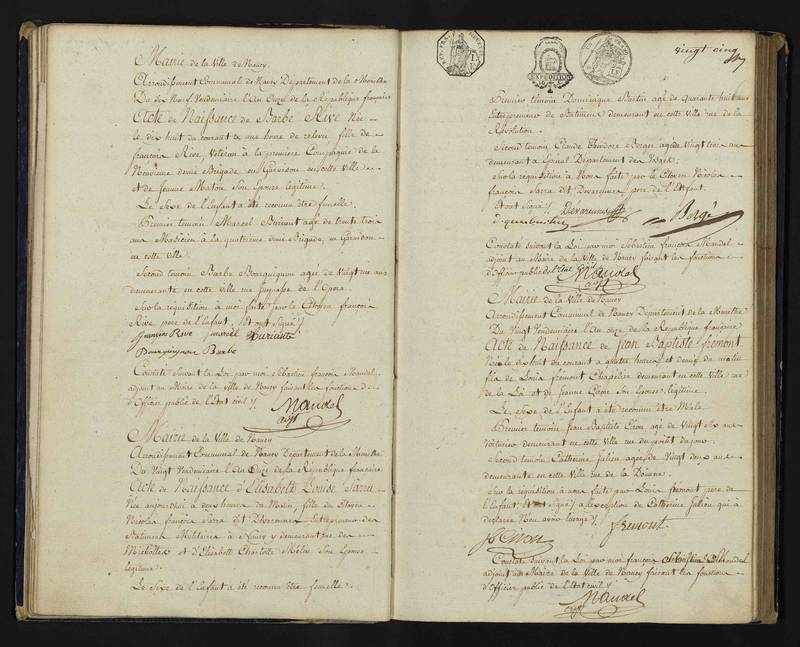 Mairie de la Ville de Nancy.
Arrondissement Communal de Nancy Département de la Meurthe
Du dix Neuf Vendemiaire l'An Onze de la République française
Acte de Naissance de Barbe Rive Née
le dix huit du courant à une heure de relevée fille de
françois Rive, Vétéran à la première Compagnie de la
Neuvieme demie Brigade, en Garnison en cette ville
et de Jeanne Maton Son Epouse légitime.
Le Sexe de l'Enfant a été reconnu être femelle.
Premier temoin Marcel Buriant agé de trente trois
ans Musicien à la quatrieme demi Brigade, en Garnison
en cette ville
Second temoin Barbe Bourguignon agée de Vingt un ans
demeurante en cette ville rue de l'Opera.
Sur la réquisition à moi faite par le Citoyen françois
Rive pere de l'Enfant. Et ont Signé ./.
françois Rive marcel
Bourguignon Barbe
Constaté Suivant la Loi, par moi Sébastien françois Mandel
adjoint au Maire de la Ville de Nancy faisant les fonctions
d'Officier public de l'Etat civil ./.
Mandel
adjt
Mairie de la Ville de Nancy
Arrondissement Communal de Nancy Département de la Meurthe
Du Vingt Vendemiaire l'An Onze de la République francaise
Acte de Naissance d'Elisabeth Louise Sarra
Née aujourd'hui à deux heures du Matin, fille du Citoyen
Nicolas françois Sara dit Entrepreneur des
Batiments Militaires à Nancy y demeurant rue des
Michottes et d'Elisabeth Charlotte Son Epouse
légitime.
Le Sexe de l'Enfant a été reconnu être femelle.
vingt cinq
Premier témoin Dominique agé de Quarante huit ans
Entrepreneur de Batiment demeurant en cette Ville rue de la
Révolution.
Second temoin, Claude Théodore Berger agé de Vingt trois ans
demeurant à Epinal Département des Vosges.
Sur la réquisition à Nous faite par le Citoyen Nicolas
françois Sarra dit pere de l'Enfant.
Et ont Signé ./.
Bergé
Constaté suivant la Loi par moi Sébastien françois Mandel
adjoint au Maire de la Ville de Nancy faisant les fonctions
d'Officier public de l'Etat civil
Mandel
adjt
Mairie de la Ville de Nancy
Arrondissement Communal de Nancy Département de la Meurthe
Du Vingt Vendemiaire l'An onze de la République française
Acte de Naissance de Jean Baptiste fremont
Né le dix huit du courant à quatre heures et demie du matin
fils de Louis fremont Chapelier demeurant en cette Ville rue
de la Loi et de Jeanne Son Epouse légitime.
Le Sexe de l'Enfant a été reconnu être Mâle.
Premier temoin Jean Baptiste agé de Vingt six ans
Voiturier demeurant en cette ville rue du point du jour
Second temoin Catherine Julien agée de Vingt deux ans
demeurante en cette Ville rue de la Douane.
Sur la réquisition à nous faite par Louis fremont pere de
l'Enfant Et ont Signé à l'exception de Catherine Julien qui a
déclaré N'en avoir l'usage ./.
fremont
Constaté suivant la Loi par moi françois Sébastien Mandel
adjoint au Maire de la Ville de Nancy faisant les fonctions
d'Officier public de l'Etat civil ./.
Mandel
adjt